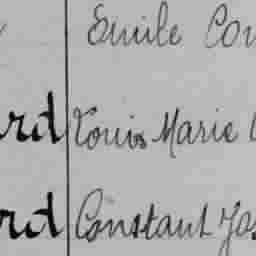 Emile Cou
rd Louis Marie
rd Constant Jos